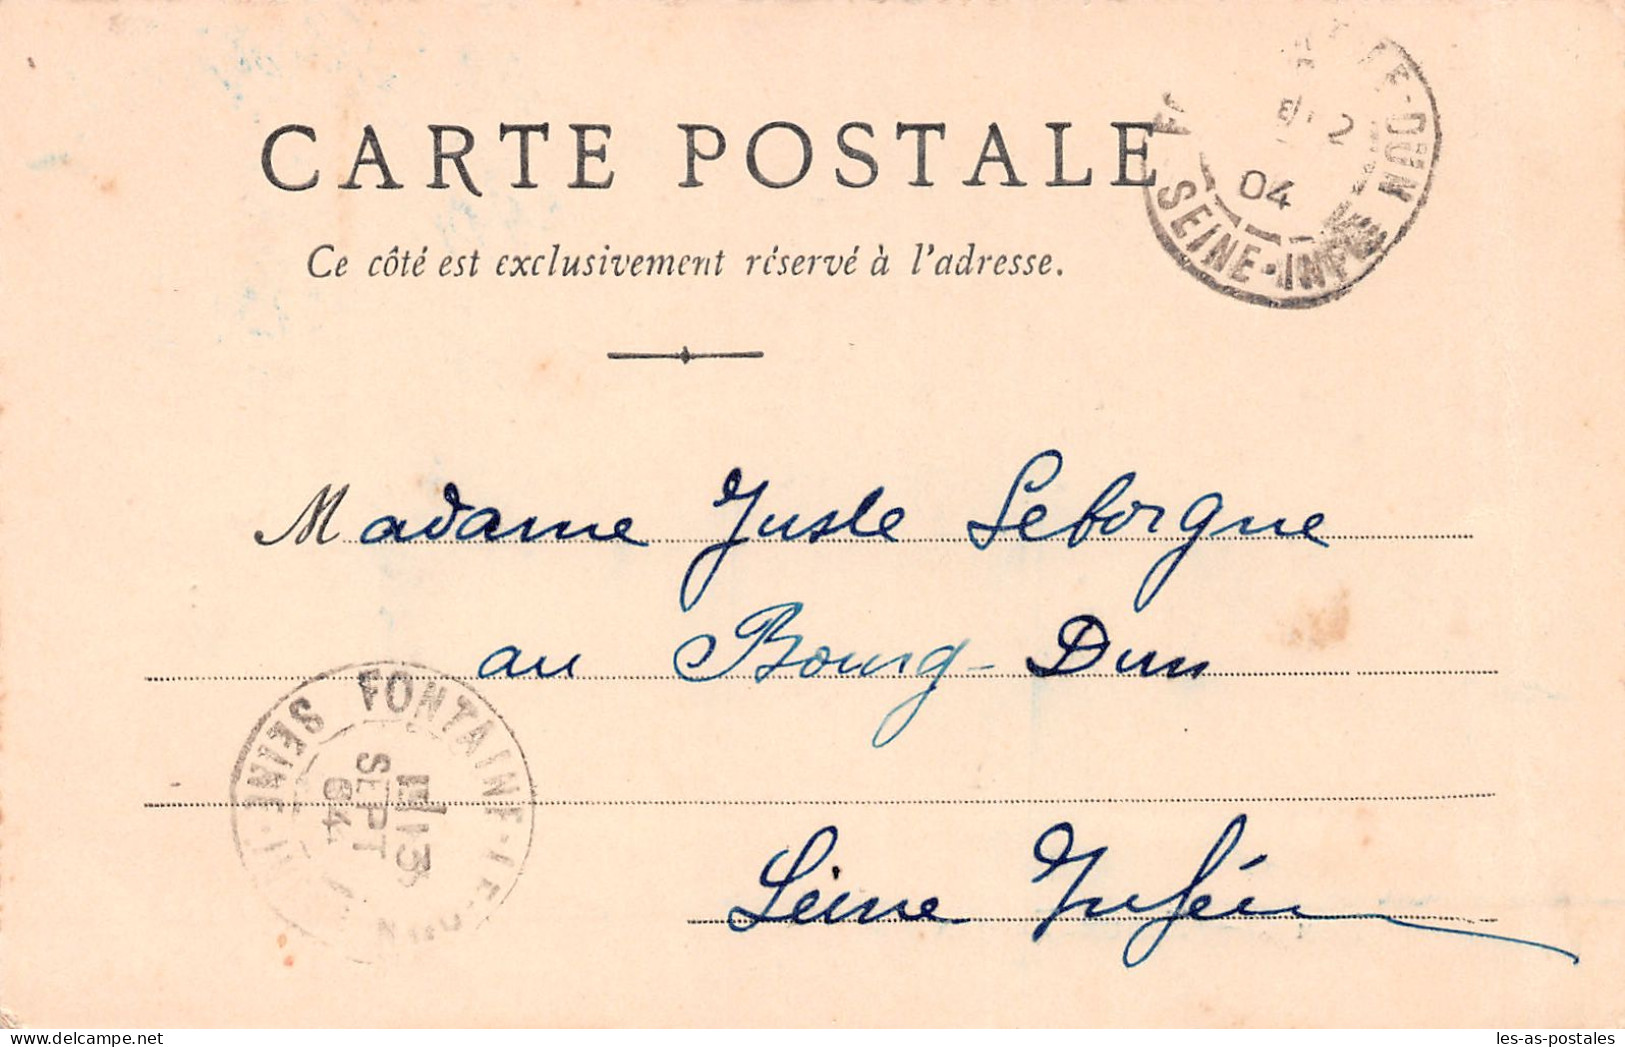 CARTE POSTALE
Ce côté est exclusivement réservé à l'adresse.
SEINE-INFRE
04
Madame Juste Leborgne
au Bourg-Dun
FONTAINE-LE-DUN
SEINE
13
SEPT
04
Seine Inférieure
les-as-postales